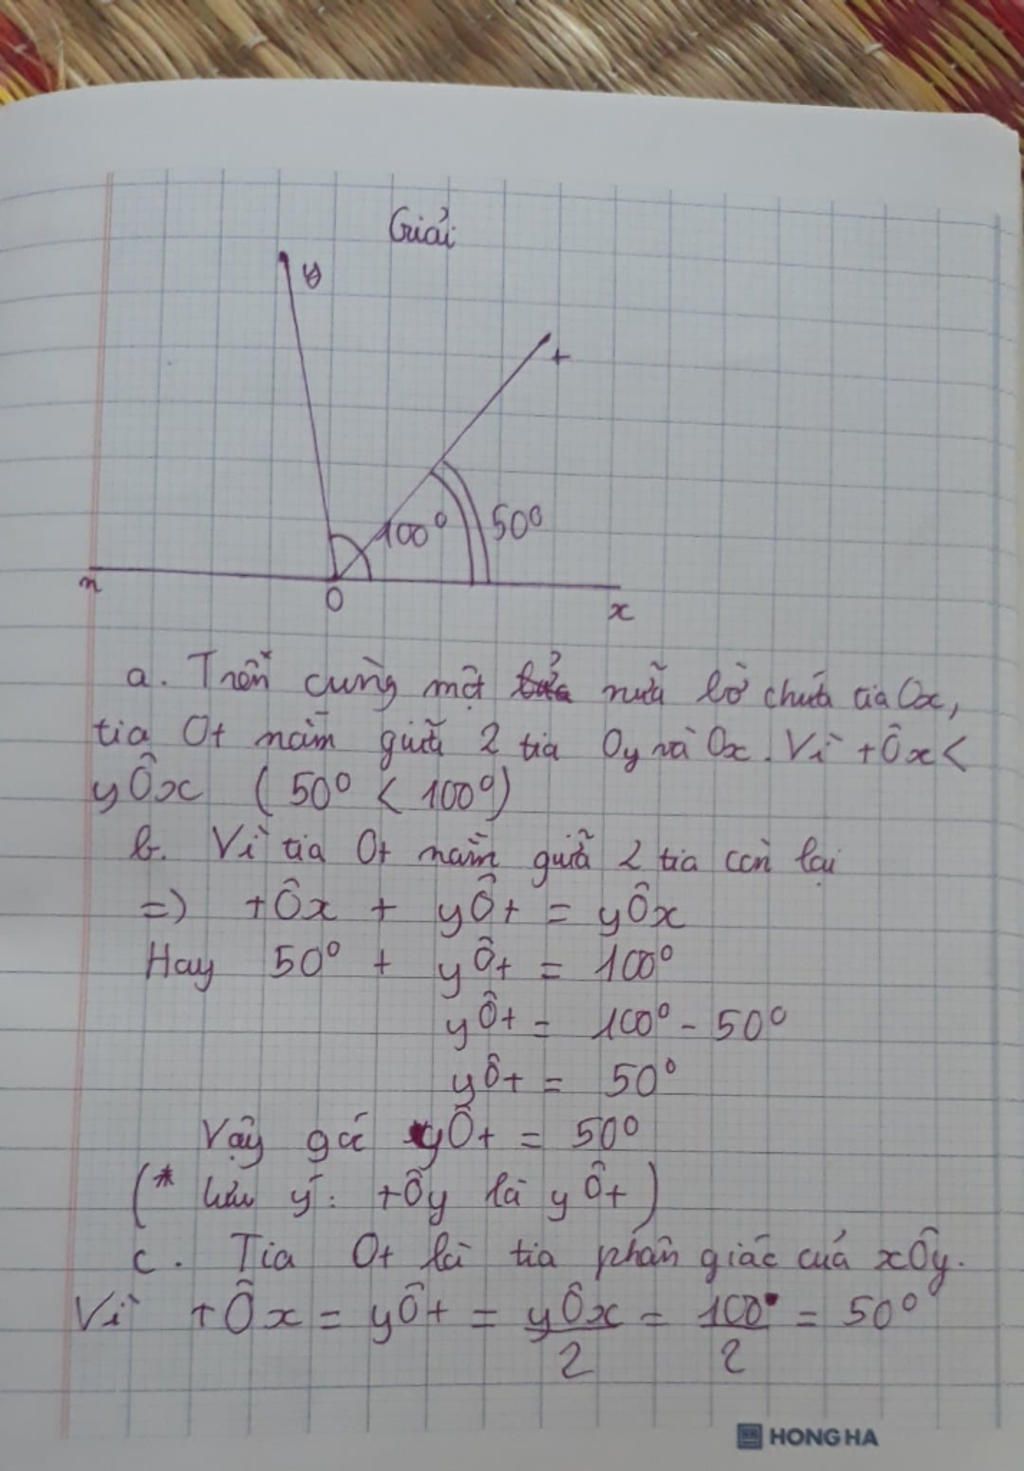 Giải
y
t
100° 50°
n
O
x
a. Trên cùng một nửa bờ chứa tia Ox,
tia Ot nằm giữa 2 tia Oy và Ox. Vì tÔx <
yÔx (50° < 100°)
b. Vì tia Ot nằm giữa 2 tia còn lại
=) tÔx + yÔt = yÔx
Hay 50° + yÔt = 100°
yÔt = 100° - 50°
yÔt = 50°
Vậy góc yÔt = 50°
(* Lưu ý: tÔy là yÔt)
c. Tia Ot là tia phân giác của xÔy.
Vì tÔx = yÔt = yÔx/2 = 100°/2 = 50°
HONG HA